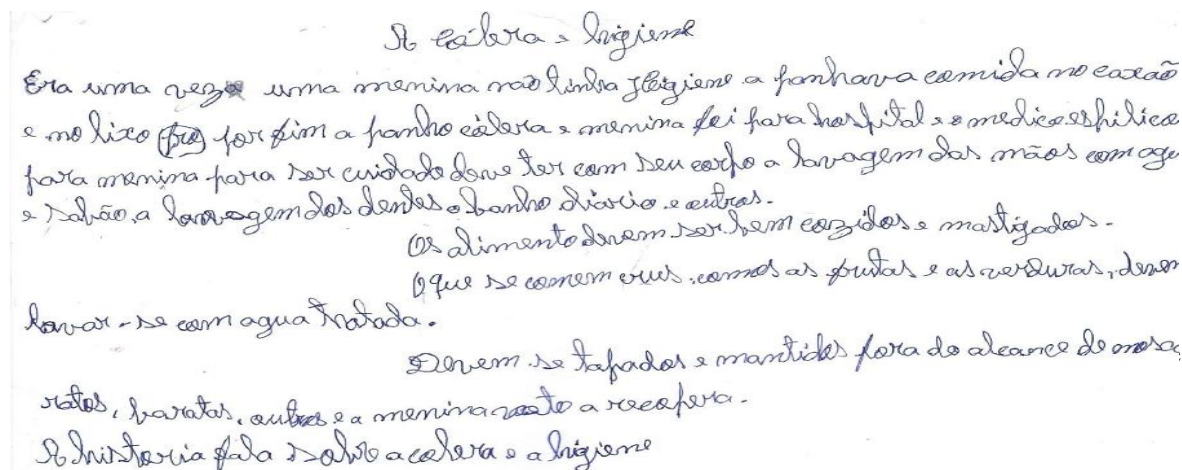 A cólera e higiene
Era uma vez uma menina não tinha Higiene a panhava comida no caxão
e no lixo pro por fim a panho cólera e menina foi para hospital e o medico espilico
para menina para ser cuidado deve ter com seu corpo a lavagem das mãos com agu
e sabão, a lavagem dos dentes o banho diario e outros.
Os alimento devem ser bem cozidos e mastigados.
O que se comem crus, comos as frutas e as verduras, devem
lavar-se com agua tratada.
Devem se tapados e mantidos fora do alcance de mosc
ratos, baratas, outros e a menina a recopera.
A historia fala sobre a colera e a higiene